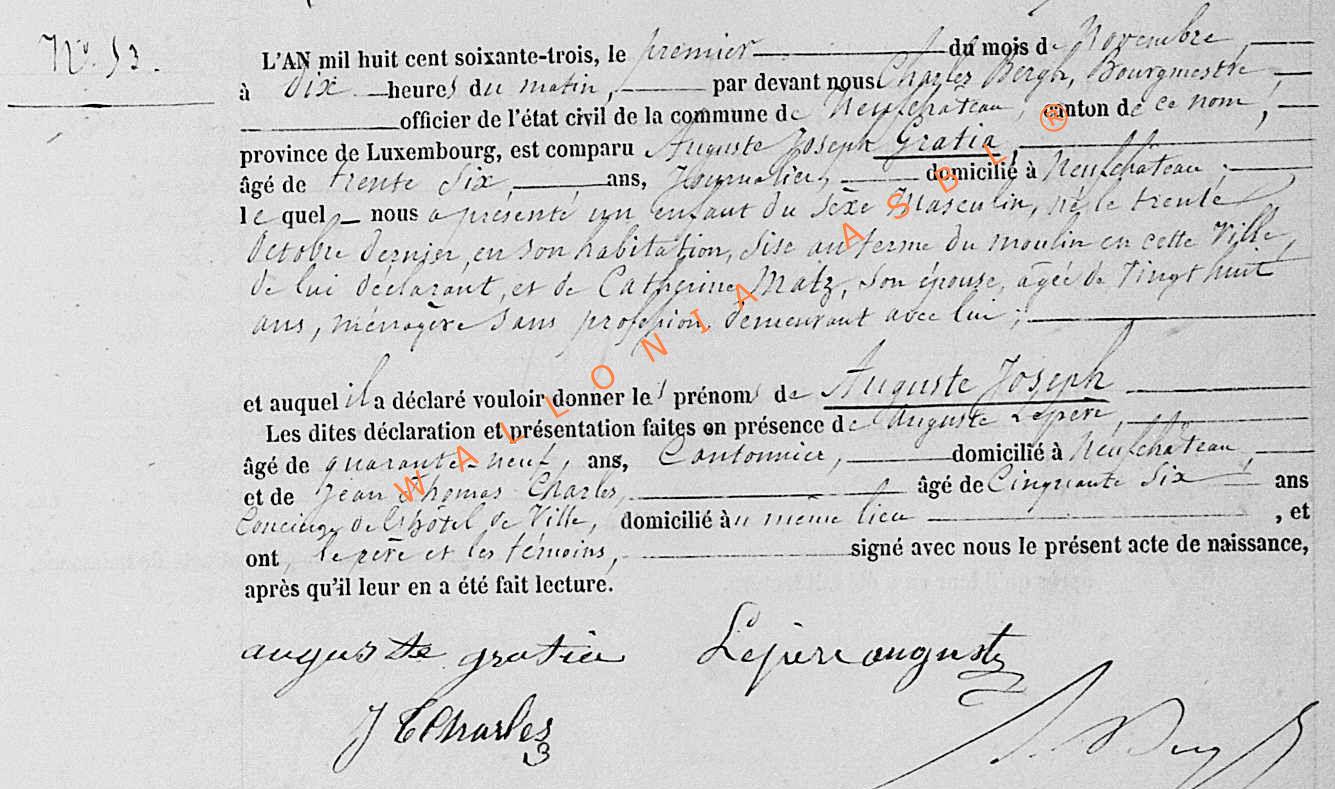 N°. 53.
L'AN mil huit cent soixante-trois, le premier du mois de Novembre,
à Dix heures du matin, par devant nous Charles Bergh, Bourgmestre,
officier de l'état civil de la commune de Neufchâteau, canton de ce nom,
province de Luxembourg, est comparu Auguste Joseph Gratia,
âgé de trente six ans, Journalier, domicilié à Neufchâteau,
lequel nous a présenté un enfant du sexe Masculin, né le trente
Octobre dernier, en son habitation, sise au terme du moulin en cette Ville,
de lui déclarant, et de Catherine Matz, son épouse, agée de Vingt huit
ans, ménagère sans profession, demeurant avec lui;
et auquel il a déclaré vouloir donner les prénoms de Auguste Joseph
Les dites déclaration et présentation faites en présence de Auguste Lepère,
âgé de quarante-neuf, ans, Cantonnier, domicilié à Neufchâteau,
et de Jean Thomas Charles, âgé de Cinquante Six ans
Concierge de l'hôtel de Ville, domicilié au même lieu, et
ont, le père et les témoins, signé avec nous le présent acte de naissance,
après qu'il leur en a été fait lecture.
auguste gratia Lepère auguste
J T Charles
WALLONIA ASBL ®